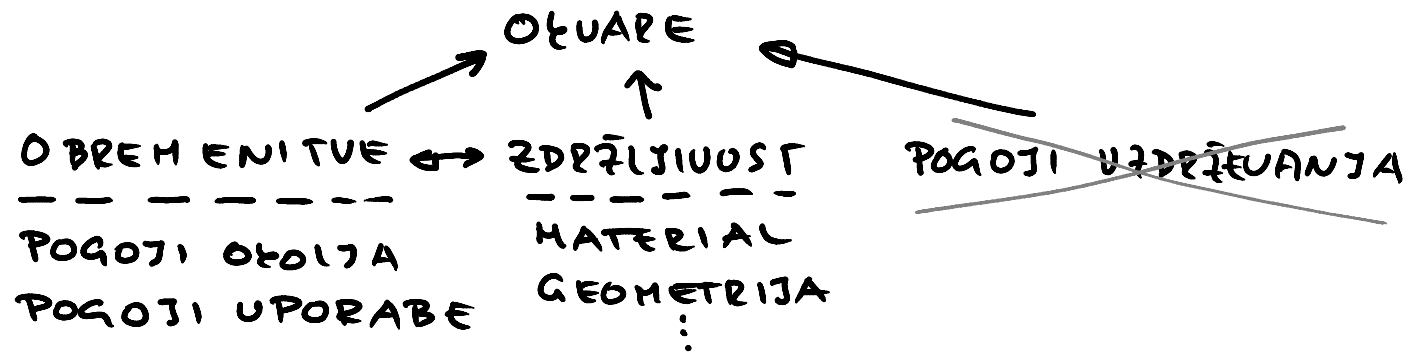 OKVARE
OBREMENITVE ZDRŽLJIVOST POGOJI VZDRŽEVANJA
POGOJI OKOLJA
MATERIAL
POGOJI UPORABE
GEOMETRIJA